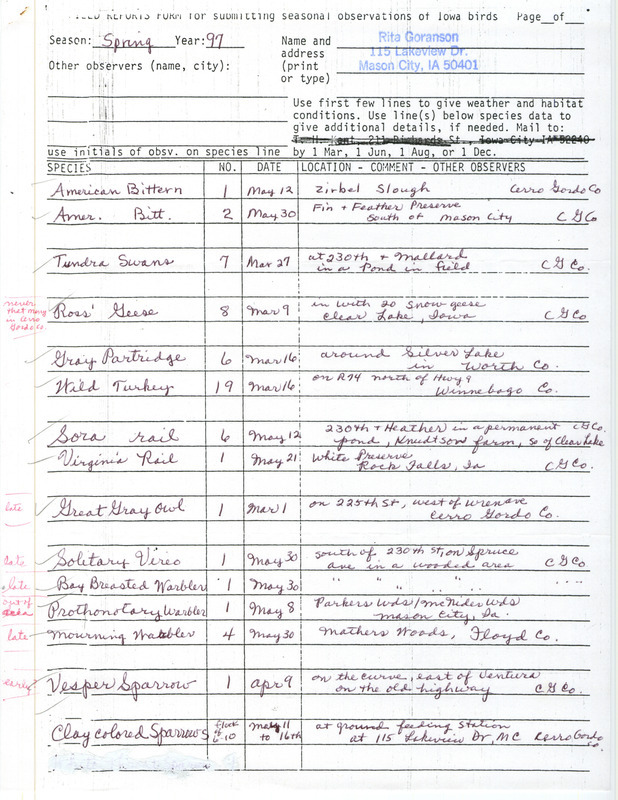 FIELD REPORTS FORM for submitting seasonal observations of Iowa birds Page__of__
Season: Spring Year: 97 Name and address (print or type)
Rita Goranson
115 Lakeview Dr.
Mason City, IA 50401
Other observers (name, city):
Use first few lines to give weather and habitat
conditions. Use line(s) below species data to
give additional details, if needed. Mail to:
T. H. Kent, 211 Richards St., Iowa City IA 52240
use initials of obsv. on species line by 1 Mar, 1 Jun, 1 Aug, or 1 Dec.
SPECIES NO. DATE LOCATION - COMMENT - OTHER OBSERVERS
American Bittern 1 May 12 Zirbel Slough Cerro Gordo Co
Amer. Bitt. 2 May 30 Fin + Feather Preserve
South of Mason City C G Co
Tundra Swans 7 Mar 27 at 230th + Mallard
in a Pond in field C G Co.
never
that many
in Cerro
Gordo Co.
Ross' Geese 8 Mar 9 in with 20 snow geese
Clear Lake, Iowa C G Co.
Gray Partridge 6 Mar 16 around Silver Lake
in Worth Co.
Wild Turkey 19 Mar 16 on R74 north of Hwy 9
Winnebago Co.
Sora rail 6 May 12 230th + Heather in a permanent C G Co.
pond, Knudtson farm, so of Clear Lake
Virginia Rail 1 May 21 White Preserve
Rock Falls, Ia C G Co.
late Great Gray Owl 1 Mar 1 on 225th St, west of Wren ave
Cerro Gordo Co.
date Solitary Vireo 1 May 30 south of 230th St, on Spruce
ave in a wooded area C G Co
late Bay Breasted Warbler 1 May 30 " " " " " "
out of
area
Prothonotary Warbler 1 May 8 Parkers Wds/McNider Wds
Mason City, Ia.
late Mourning Warbler 4 May 30 Mathers Woods, Floyd Co.
early Vesper Sparrow 1 apr 9 on the curve, east of Ventura
on the old highway C G Co.
Clay colored Sparrows flock of 6-10 May 11 to 16th at ground feeding station
at 115 Lakeview Dr, MC Cerro Gordo Co.